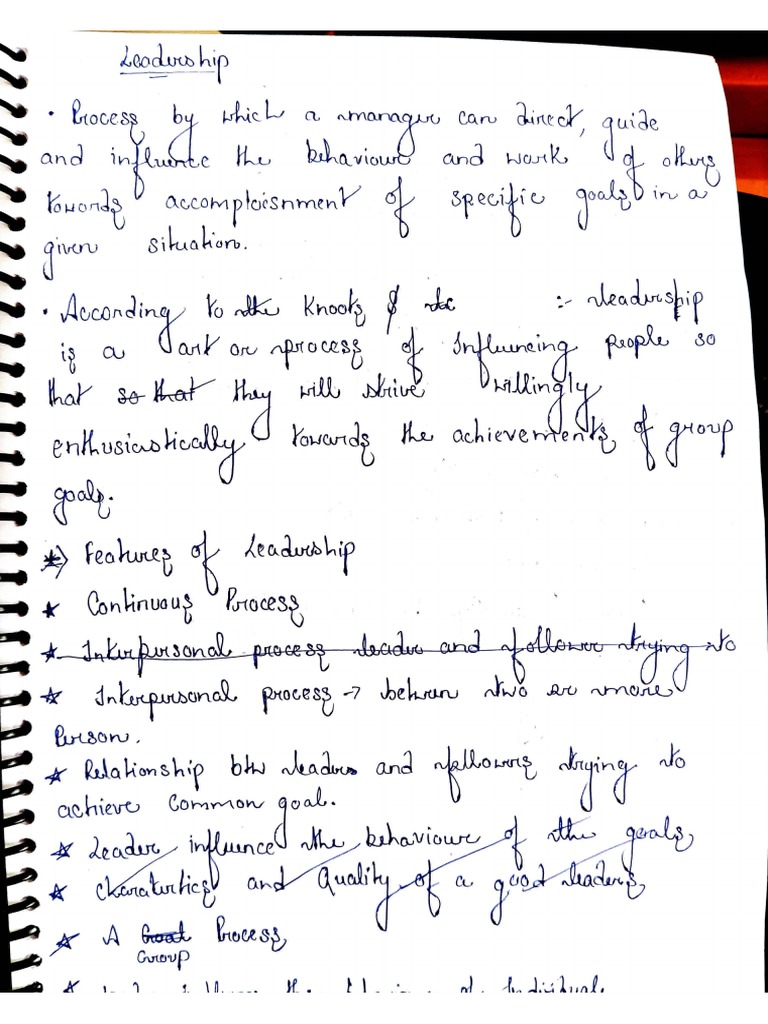 Leadership
• Process by which a manager can direct, guide
and influence the behaviour and work of others
towards accomploisnment of specific goals in a
given situation.
• According to the Knootz & :- leadership
is a art or process of Influencing people so
that so that they will strive willingly
enthusiastically towards the achievements of group
goals.
Features of Leadership
★ Continuous Process
★ Interpersonal process leader and follower trying to
★ Interpersonal process → between two or more
Person.
★ Relationship btw leaders and followers trying to
achieve common goal.
★ Leader influence the behaviour of the goals
★ charaturtics and Quality of a good leaders
★ A Goal Process
Group